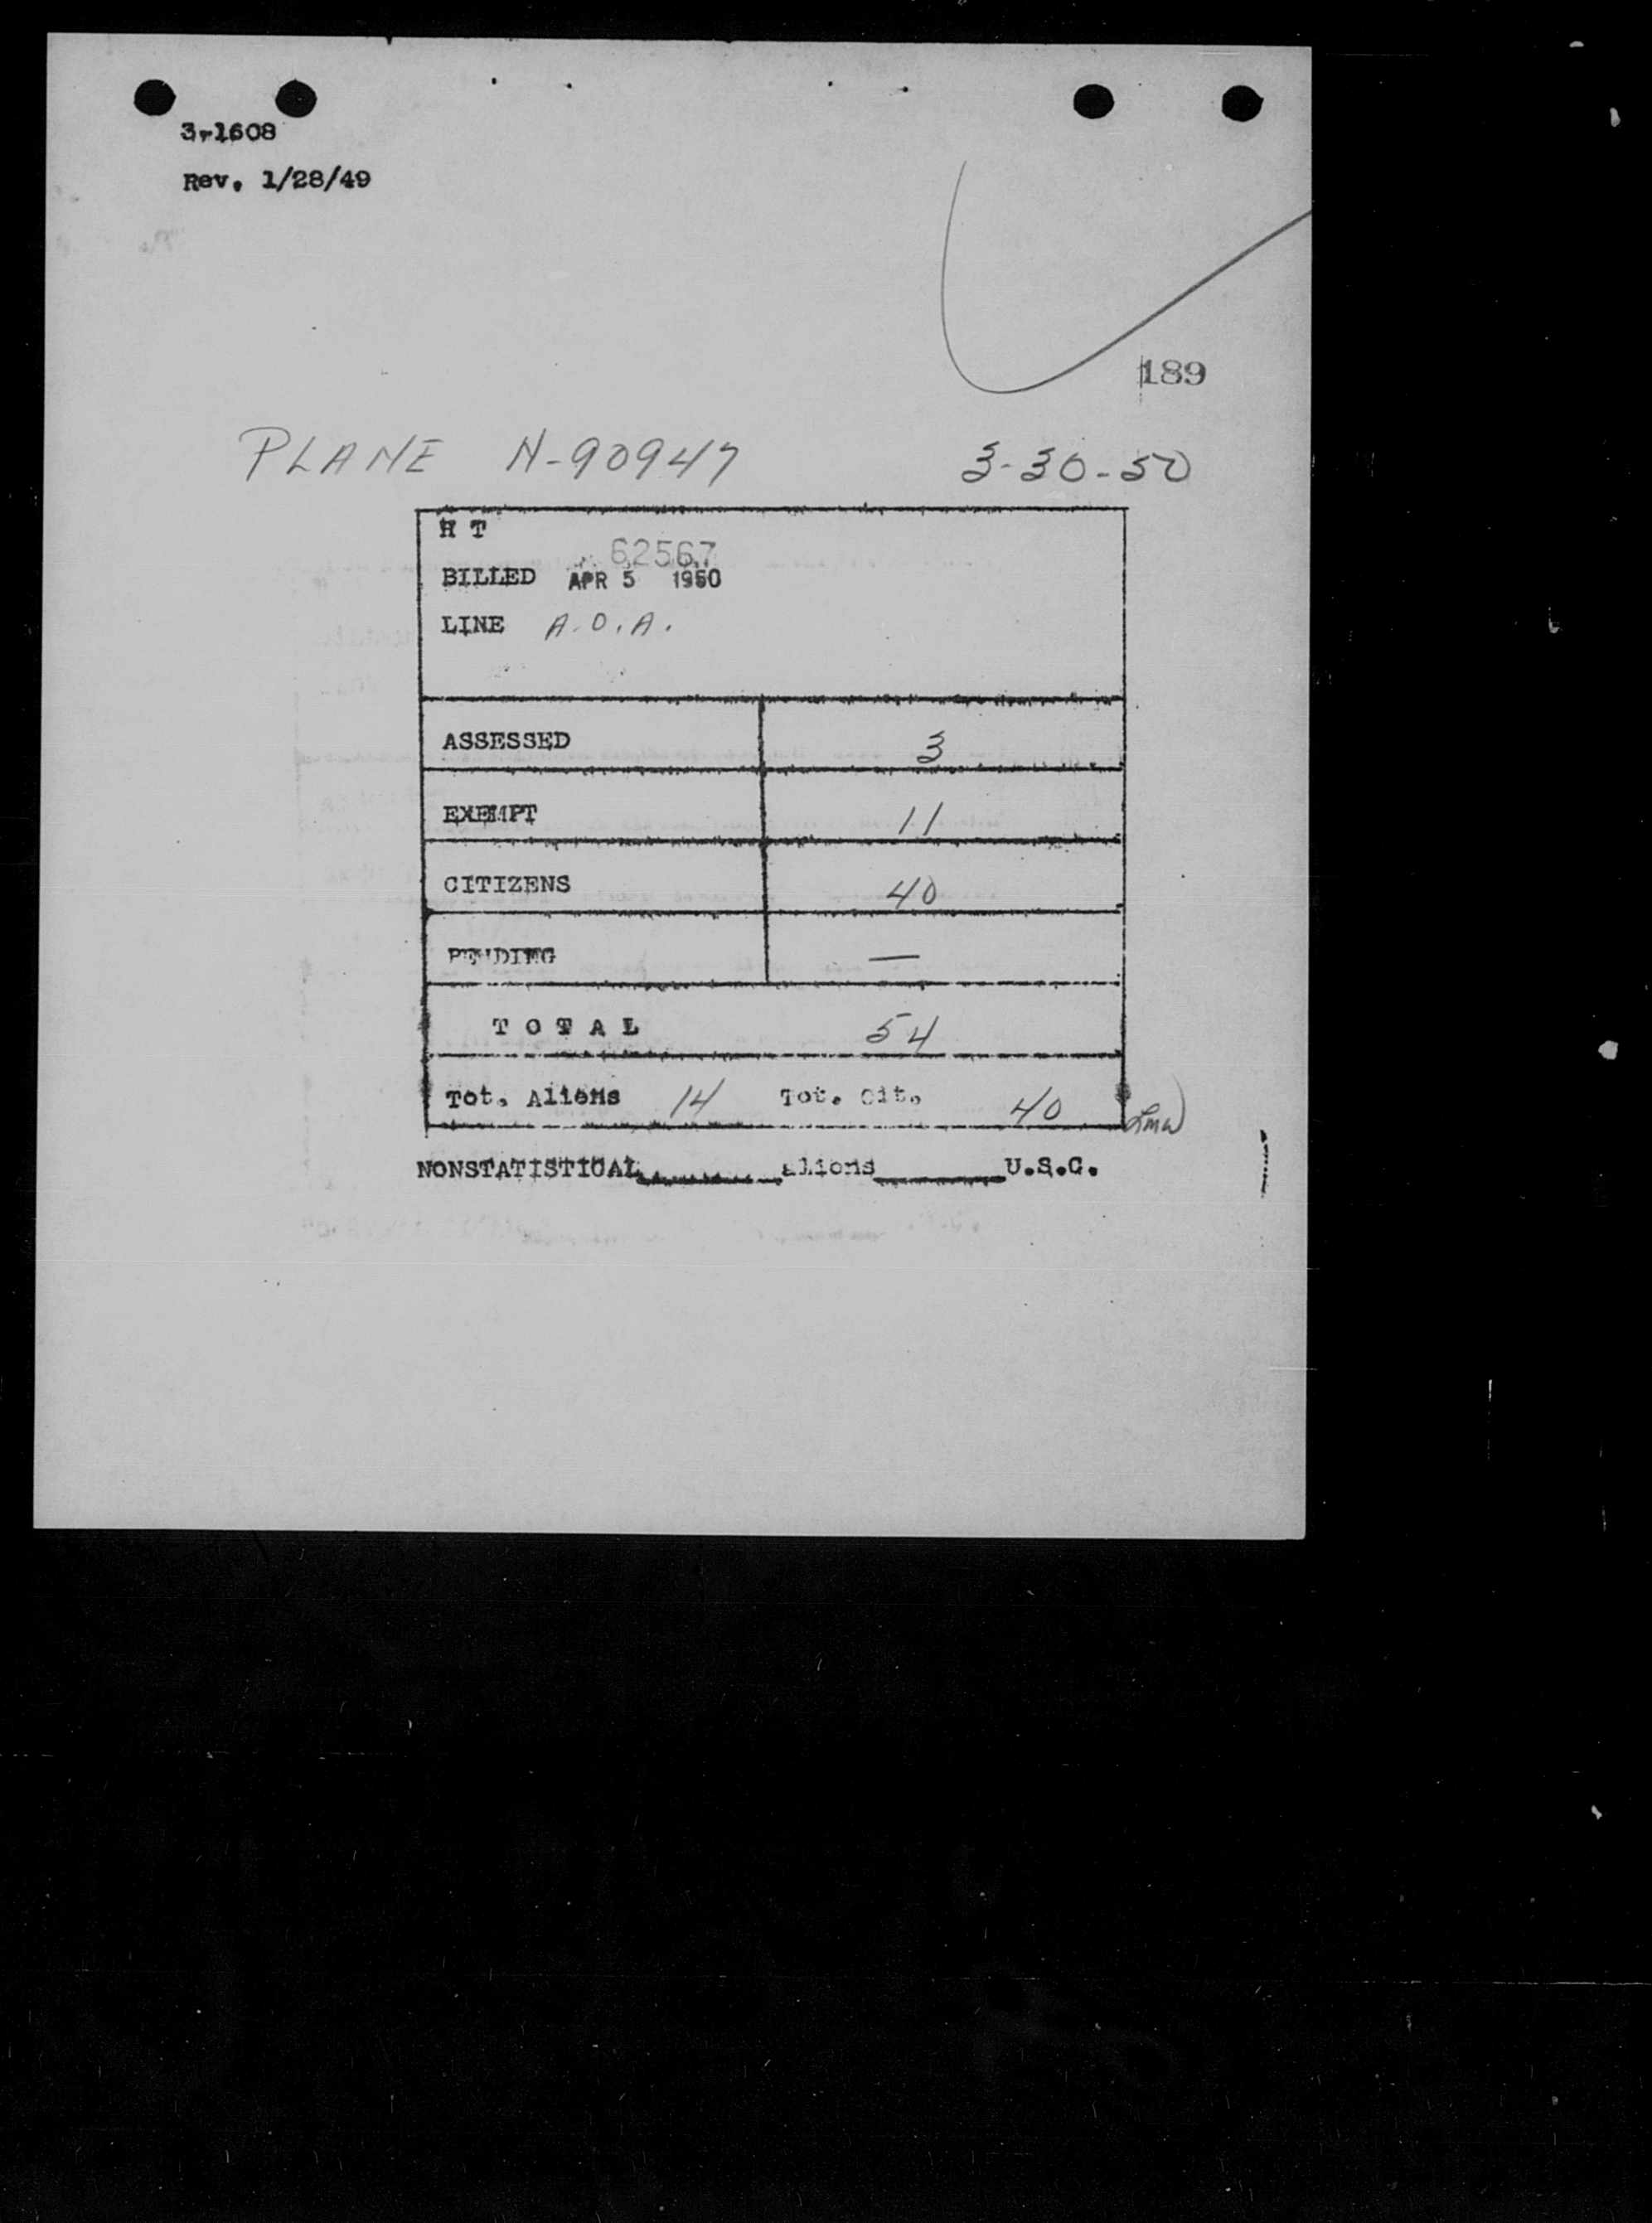 3-1608
Rev. 1/28/49
189
PLANE N-90947 3-30-50
H T
62567
BILLED APR 5 1950
LINE A.O.A.
ASSESSED 3
EXEMPT 11
CITIZENS 40
PENDING —
TOTAL 54
Tot. Aliens 14 Tot. Cit. 40
NONSTATISTICAL______aliens______U.S.C.